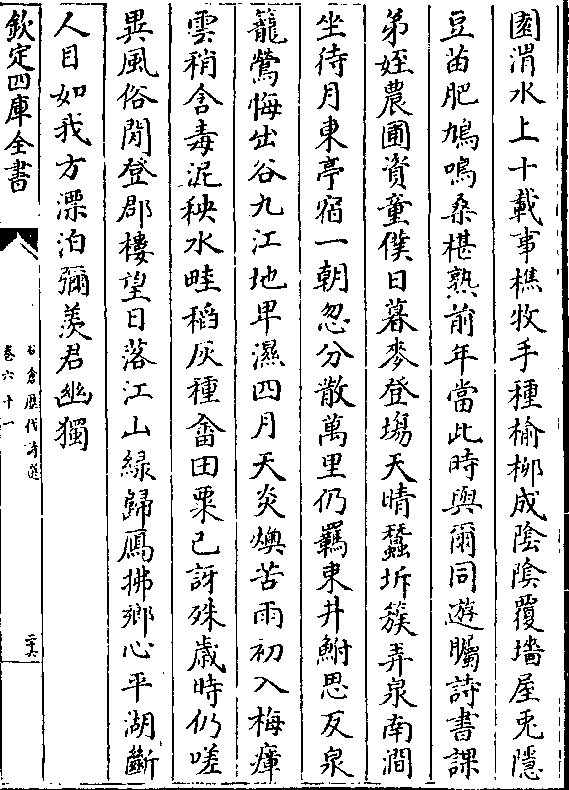 園渭水上十載事樵牧手種榆柳成陰陰覆墻屋兎隱
豆苗肥鳩鳴桑椹熟前年當此時與爾同遊矚詩書課
弟姪農圃資童僕日暮麥登場天晴蠶坼簇弄泉南澗
坐待月東亭宿一朝忽分散萬里仍羈束井鮒思反泉
籠鶯悔出谷九江地卑濕四月天炎燠苦雨初入梅瘴
雲稍含毒泥秧水畦稻灰種畬田粟已訝殊歳時仍嗟
異風俗閒登郡樓望日落江山緑歸鴈拂鄉心平湖斷
人目如我方漂泊彌羨君幽獨
欽定四庫全書
石倉歴代詩選
卷六十一
二六